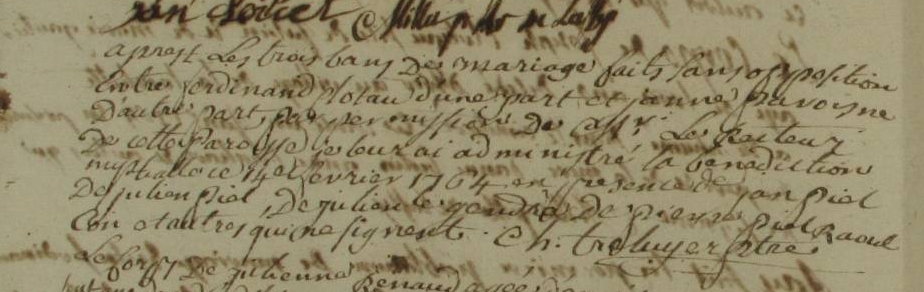 jan
aprest Les trois bans De mariage faits sans opposition
Entre ferdinand d'une part et janne
D'autre part, par permission De Mr Le Recteur
De cette Paroisse je leur ai administré la benediction
nuptialle ce 14e fevrier 1764 en presence de jan piel
De julien piel, De julien le gendre De pierre piel Raoul
et autres qui ne signent. Ch: ptre
Le corps De julienne Renaud agée